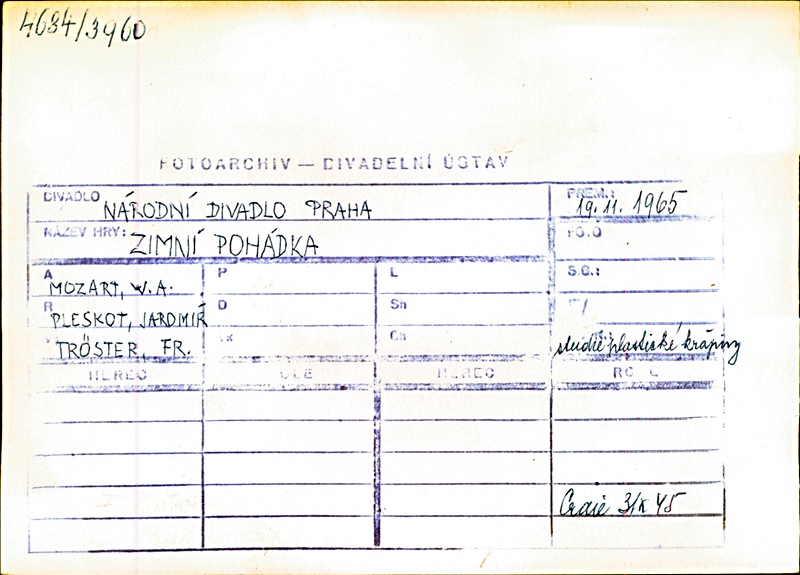 4684/3960
FOTOARCHIV — DIVADELNÍ ÚSTAV
DIVADLO NÁRODNÍ DIVADLO PRAHA
PREM.: 19. 11. 1965
NÁZEV HRY: ZIMNÍ POHÁDKA
FO.O
A MOZART, W.A.
P
L
S.G.:
R PLESKOT, JAROMIR
D
Sh
TRÖSTER, FR.
Ch
studie plastické krajiny
HEREC
HEREC